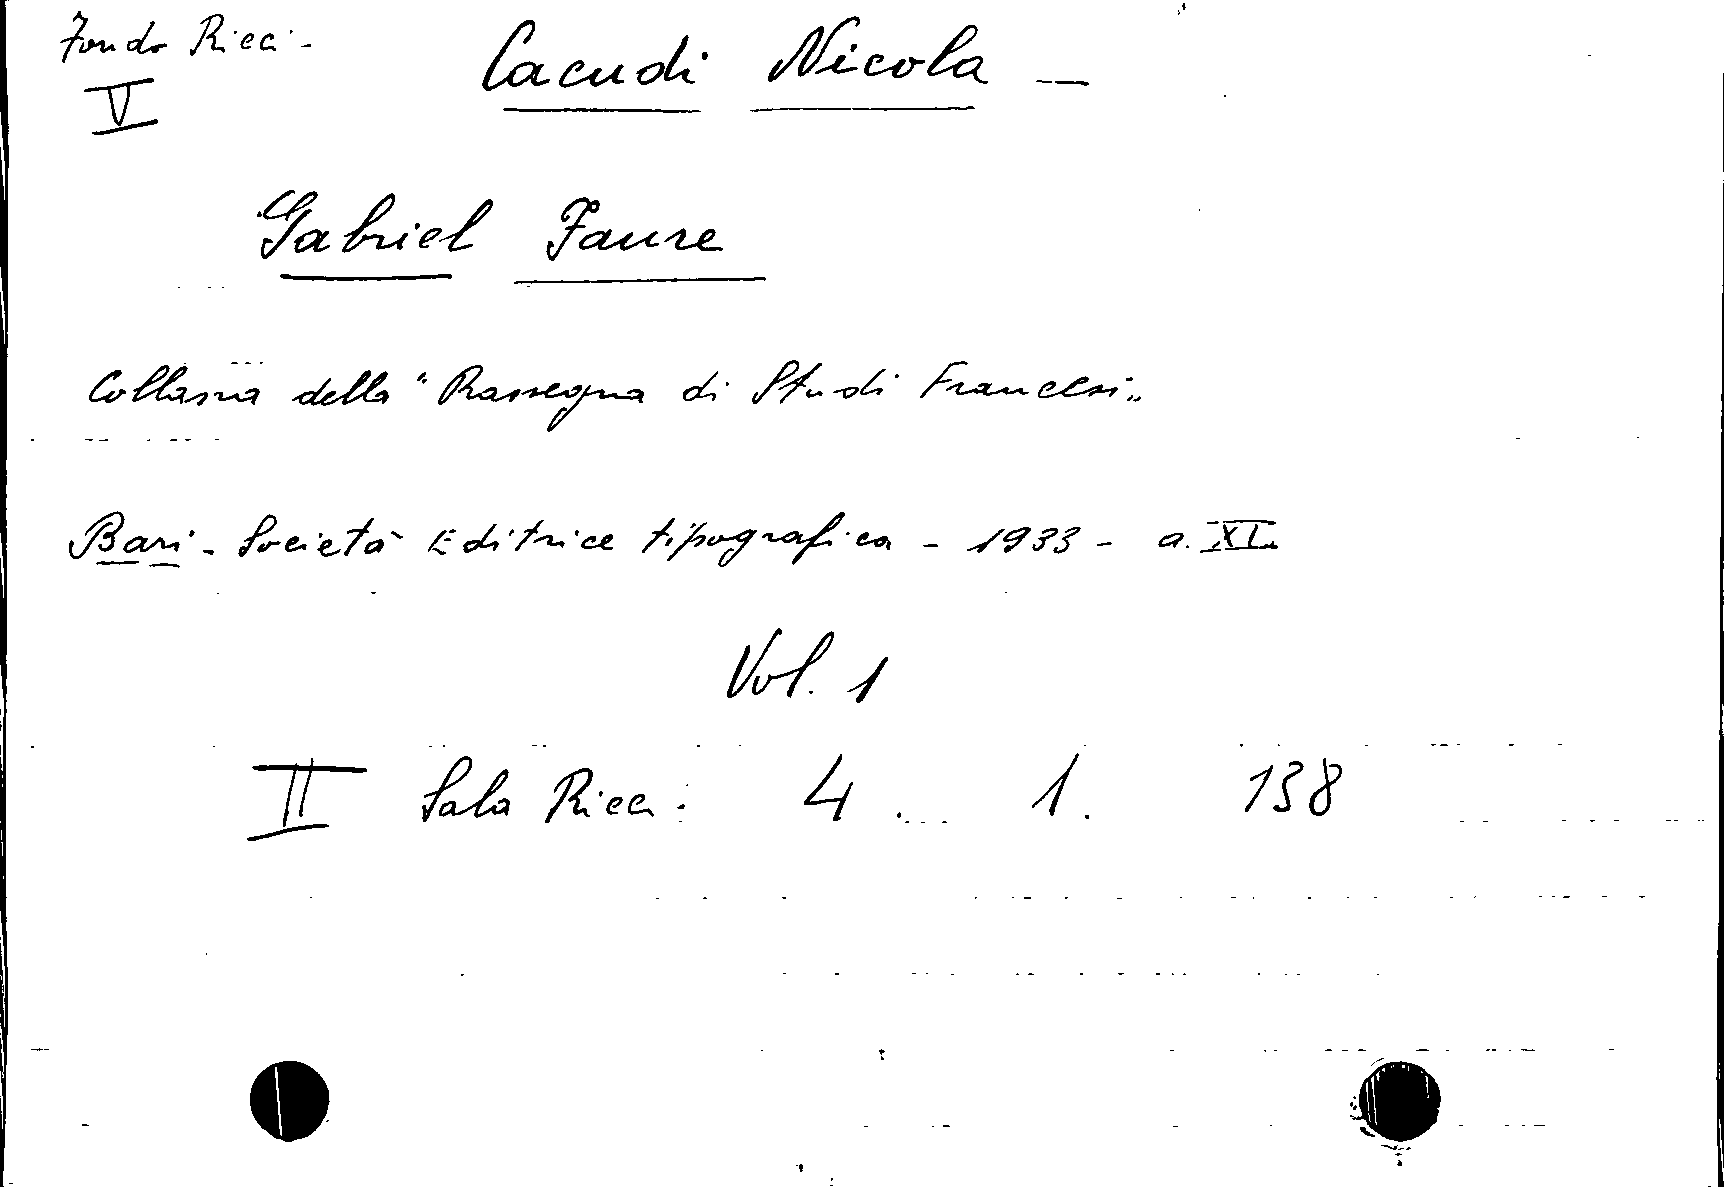 Fondo Ricci - Cacudi Nicola —
V
Gabriel Faure
Collana della "Rassegna di Studi Francesi„
Bari - Società Editrice tipografica - 1933 - a. XI.
Vol. 1
II Sala Ricci: 4. 1. 138